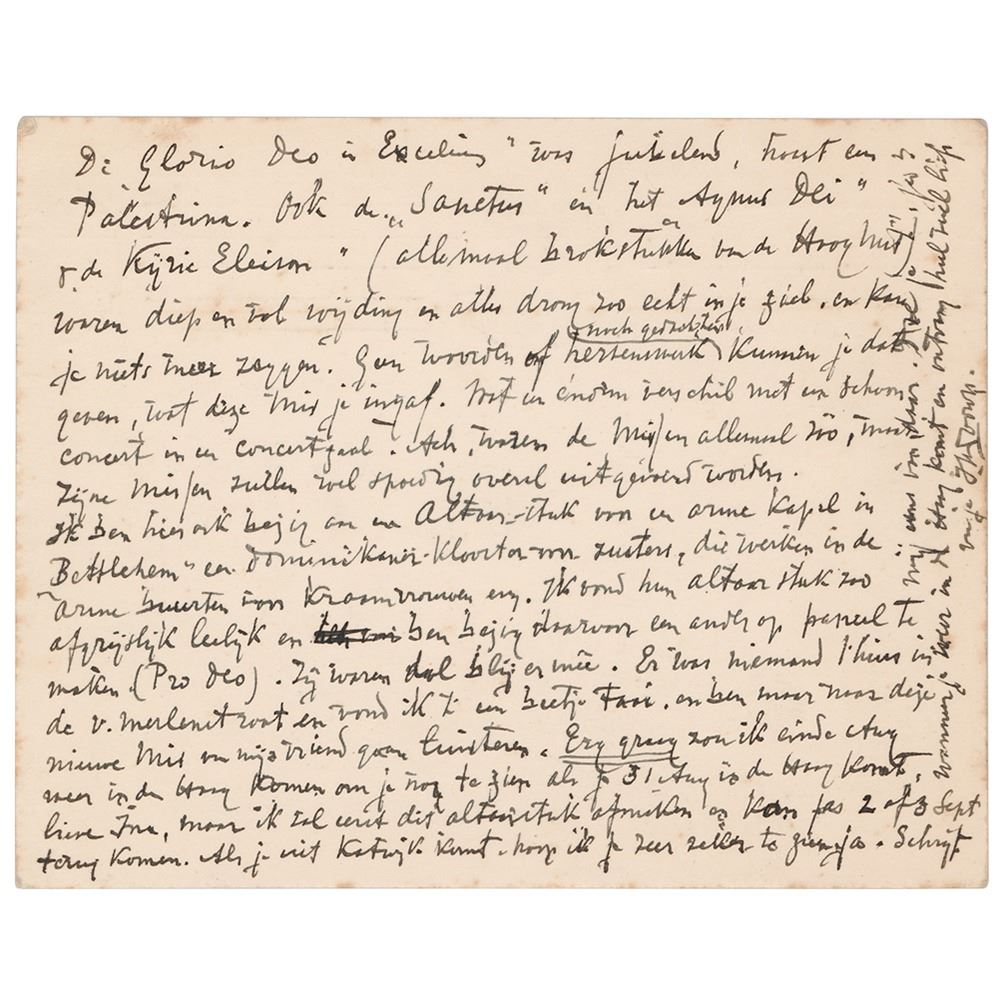 De Gloria Deo in Excelsius" was jubelend, haast een
Palestrina. Ook de „Sanctus" en het Agnus Dei"
& de Kÿrie Eleison" (allemaal brokstukken van de Hoogmis)
waren diep en vol wijding en alles drong zoo echt in je ziel. en kan
je niets meer zeggen. Geen woorden of hersenswerk (noch gedachten) kunnen je dat
geven, wat deze Mis je ingaf. Wat een enorm verschil met een schoon
concert in een concertzaal. Ach, waren de Missen allemaal zoo, maar
zijne Missen zullen wel spoedig overal uitgevoerd worden.
Ik ben hier ook bezig aan een Altaar-stuk voor een arme Kapel in
Bethlehem" een Dominikaner-Klooster voor zusters, die werken in de
arme buurten voor Kraamvrouwen enz. Ik vond hun altaarstuk zoo
afgrijslijk leelijk en ben bezig daarvoor een ander op paneel te
maken. (Pro Deo). Zij waren dol blij er mêe. Er was niemand thuis in
de v. Merlenstraat en vond ik 't een beetje saai. en ben maar naar deze
nieuwe Mis van mijn vriend gaan luisteren. Erg graag zou ik einde Aug
weer in den Haag komen om je nog te zien als je 31 Aug in de Haag komt,
lieve Ina, maar ik zal eerst dit altaarstuk afmaken en kan pas 2 of 3 Sept
terug komen. Als je uit Katwijk komt. hoop ik je zeer zeker te zien ja. Schrijf
mij eens van daar.
wanneer je weer in den Haag komt en ontvang heel veel liefs
van je